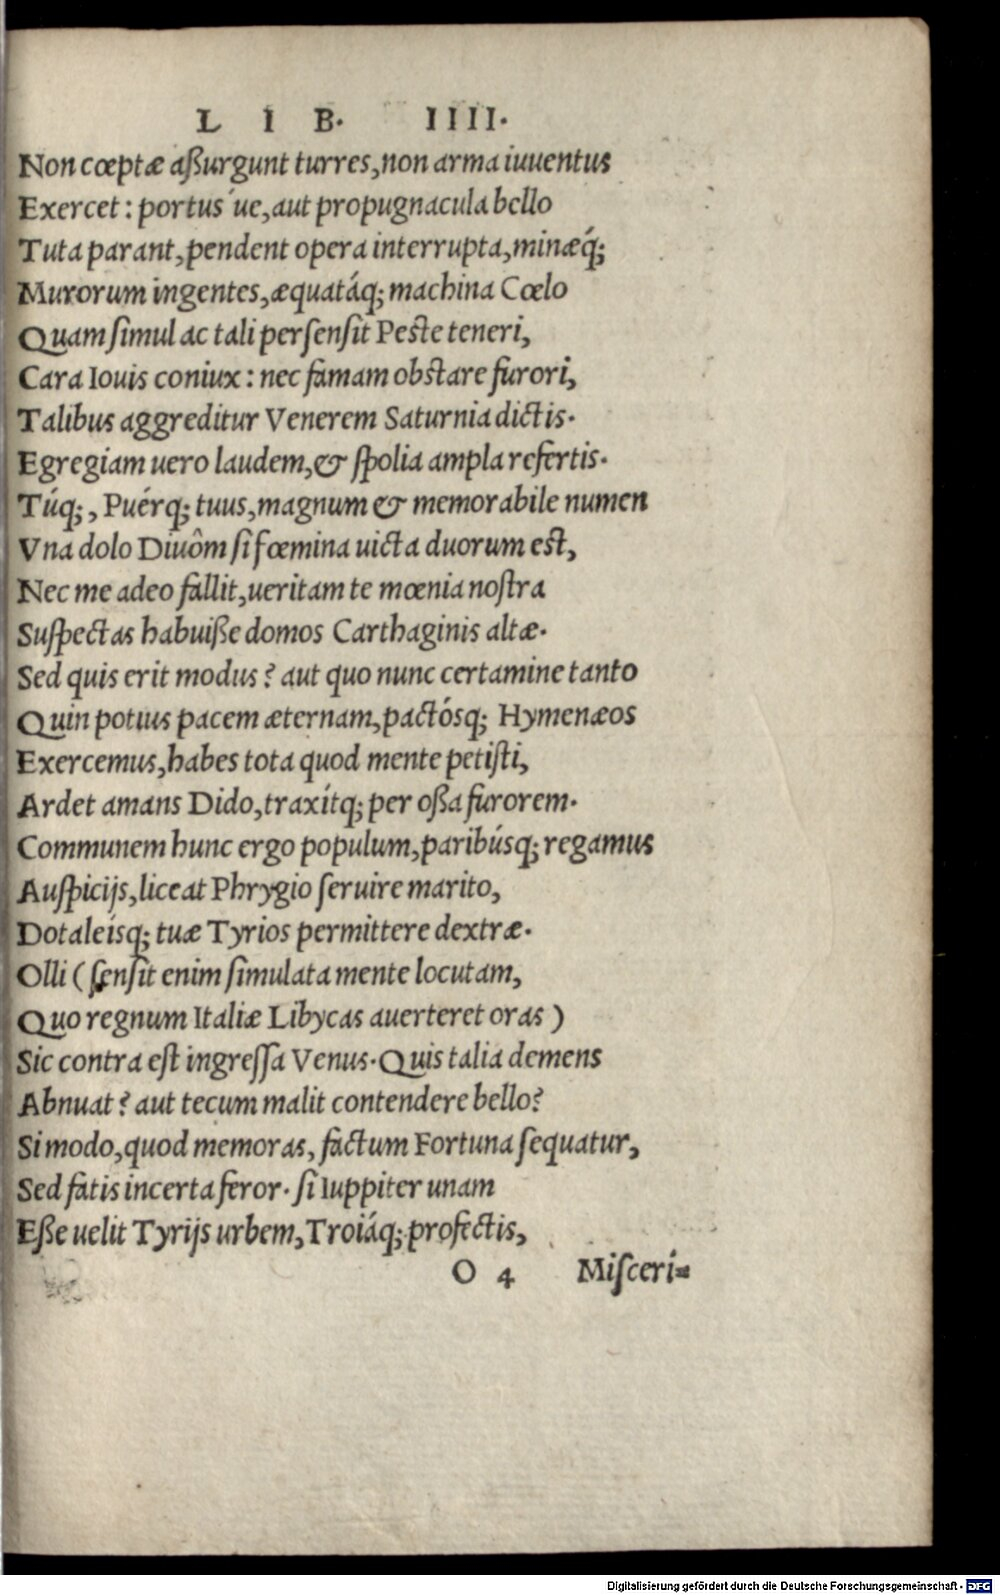 LIB. IIII.
Non cœptæ aßurgunt turres, non arma iuuentus
Exercet: portus´ue, aut propugnacula bello
Tuta parant, pendent opera interrupta, minæq́;
Murorum ingentes, æquatáq; machina Cœlo
Quam ſimul ac tali perſenſit Peſte teneri,
Cara Iouis coniux: nec famam obſtare furori,
Talibus aggreditur Venerem Saturnia dictis.
Egregiam uero laudem, & ſpolia ampla refertis.
Túq;, Puérq; tuus, magnum & memorabile numen
Vna dolo Diuôm ſi fœmina uicta duorum eſt,
Nec me adeo fallit, ueritam te mœnia noſtra
Suſpectas habuiße domos Carthaginis altæ.
Sed quis erit modus? aut quo nunc certamine tanto
Quin potius pacem æternam, pactósq; Hymenæos
Exercemus, habes tota quod mente petiſti,
Ardet amans Dido, traxítq; per oßa furorem.
Communem hunc ergo populum, paribúsq; regamus
Auſpicijs, liceat Phrygio ſeruire marito,
Dotaleísq; tuæ Tyrios permittere dextræ.
Olli (ſenſit enim ſimulata mente locutam,
Quo regnum Italiæ Libycas auerteret oras)
Sic contra eſt ingreſſa Venus. Quis talia demens
Abnuat? aut tecum malit contendere bello?
Si modo, quod memoras, factum Fortuna ſequatur,
Sed fatis incerta feror. ſi Iuppiter unam
Eße uelit Tyrijs urbem, Troiáq; profectis,
O 4 Miſceri=
Digitalisierung gefördert durch die Deutsche Forschungsgemeinschaft - DFG